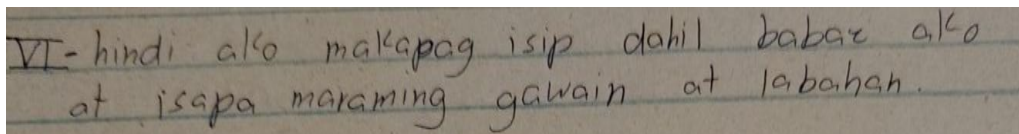 VI- hindi ako makapag isip dahil babae ako
at isapa maraming gawain at labahan.